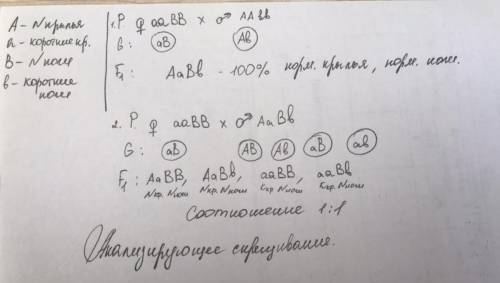 A - N крылья
a - короткие кр.
B - N ноги
b - короткие
ноги
1. P ♀ aaBB × ♂ AAbb
G: aB Ab
F1: AaBb - 100% норм. крылья, норм. ноги.
2. P. ♀ aaBB × ♂ AaBb
G: aB AB Ab aB ab
F1: AaBB, AaBb, aaBB, aaBb
Nкр. Nноги Nкр. Nноги к.кр. Nноги к.кр. Nноги
Соотношение 1:1
Анализирующее скрещивание.